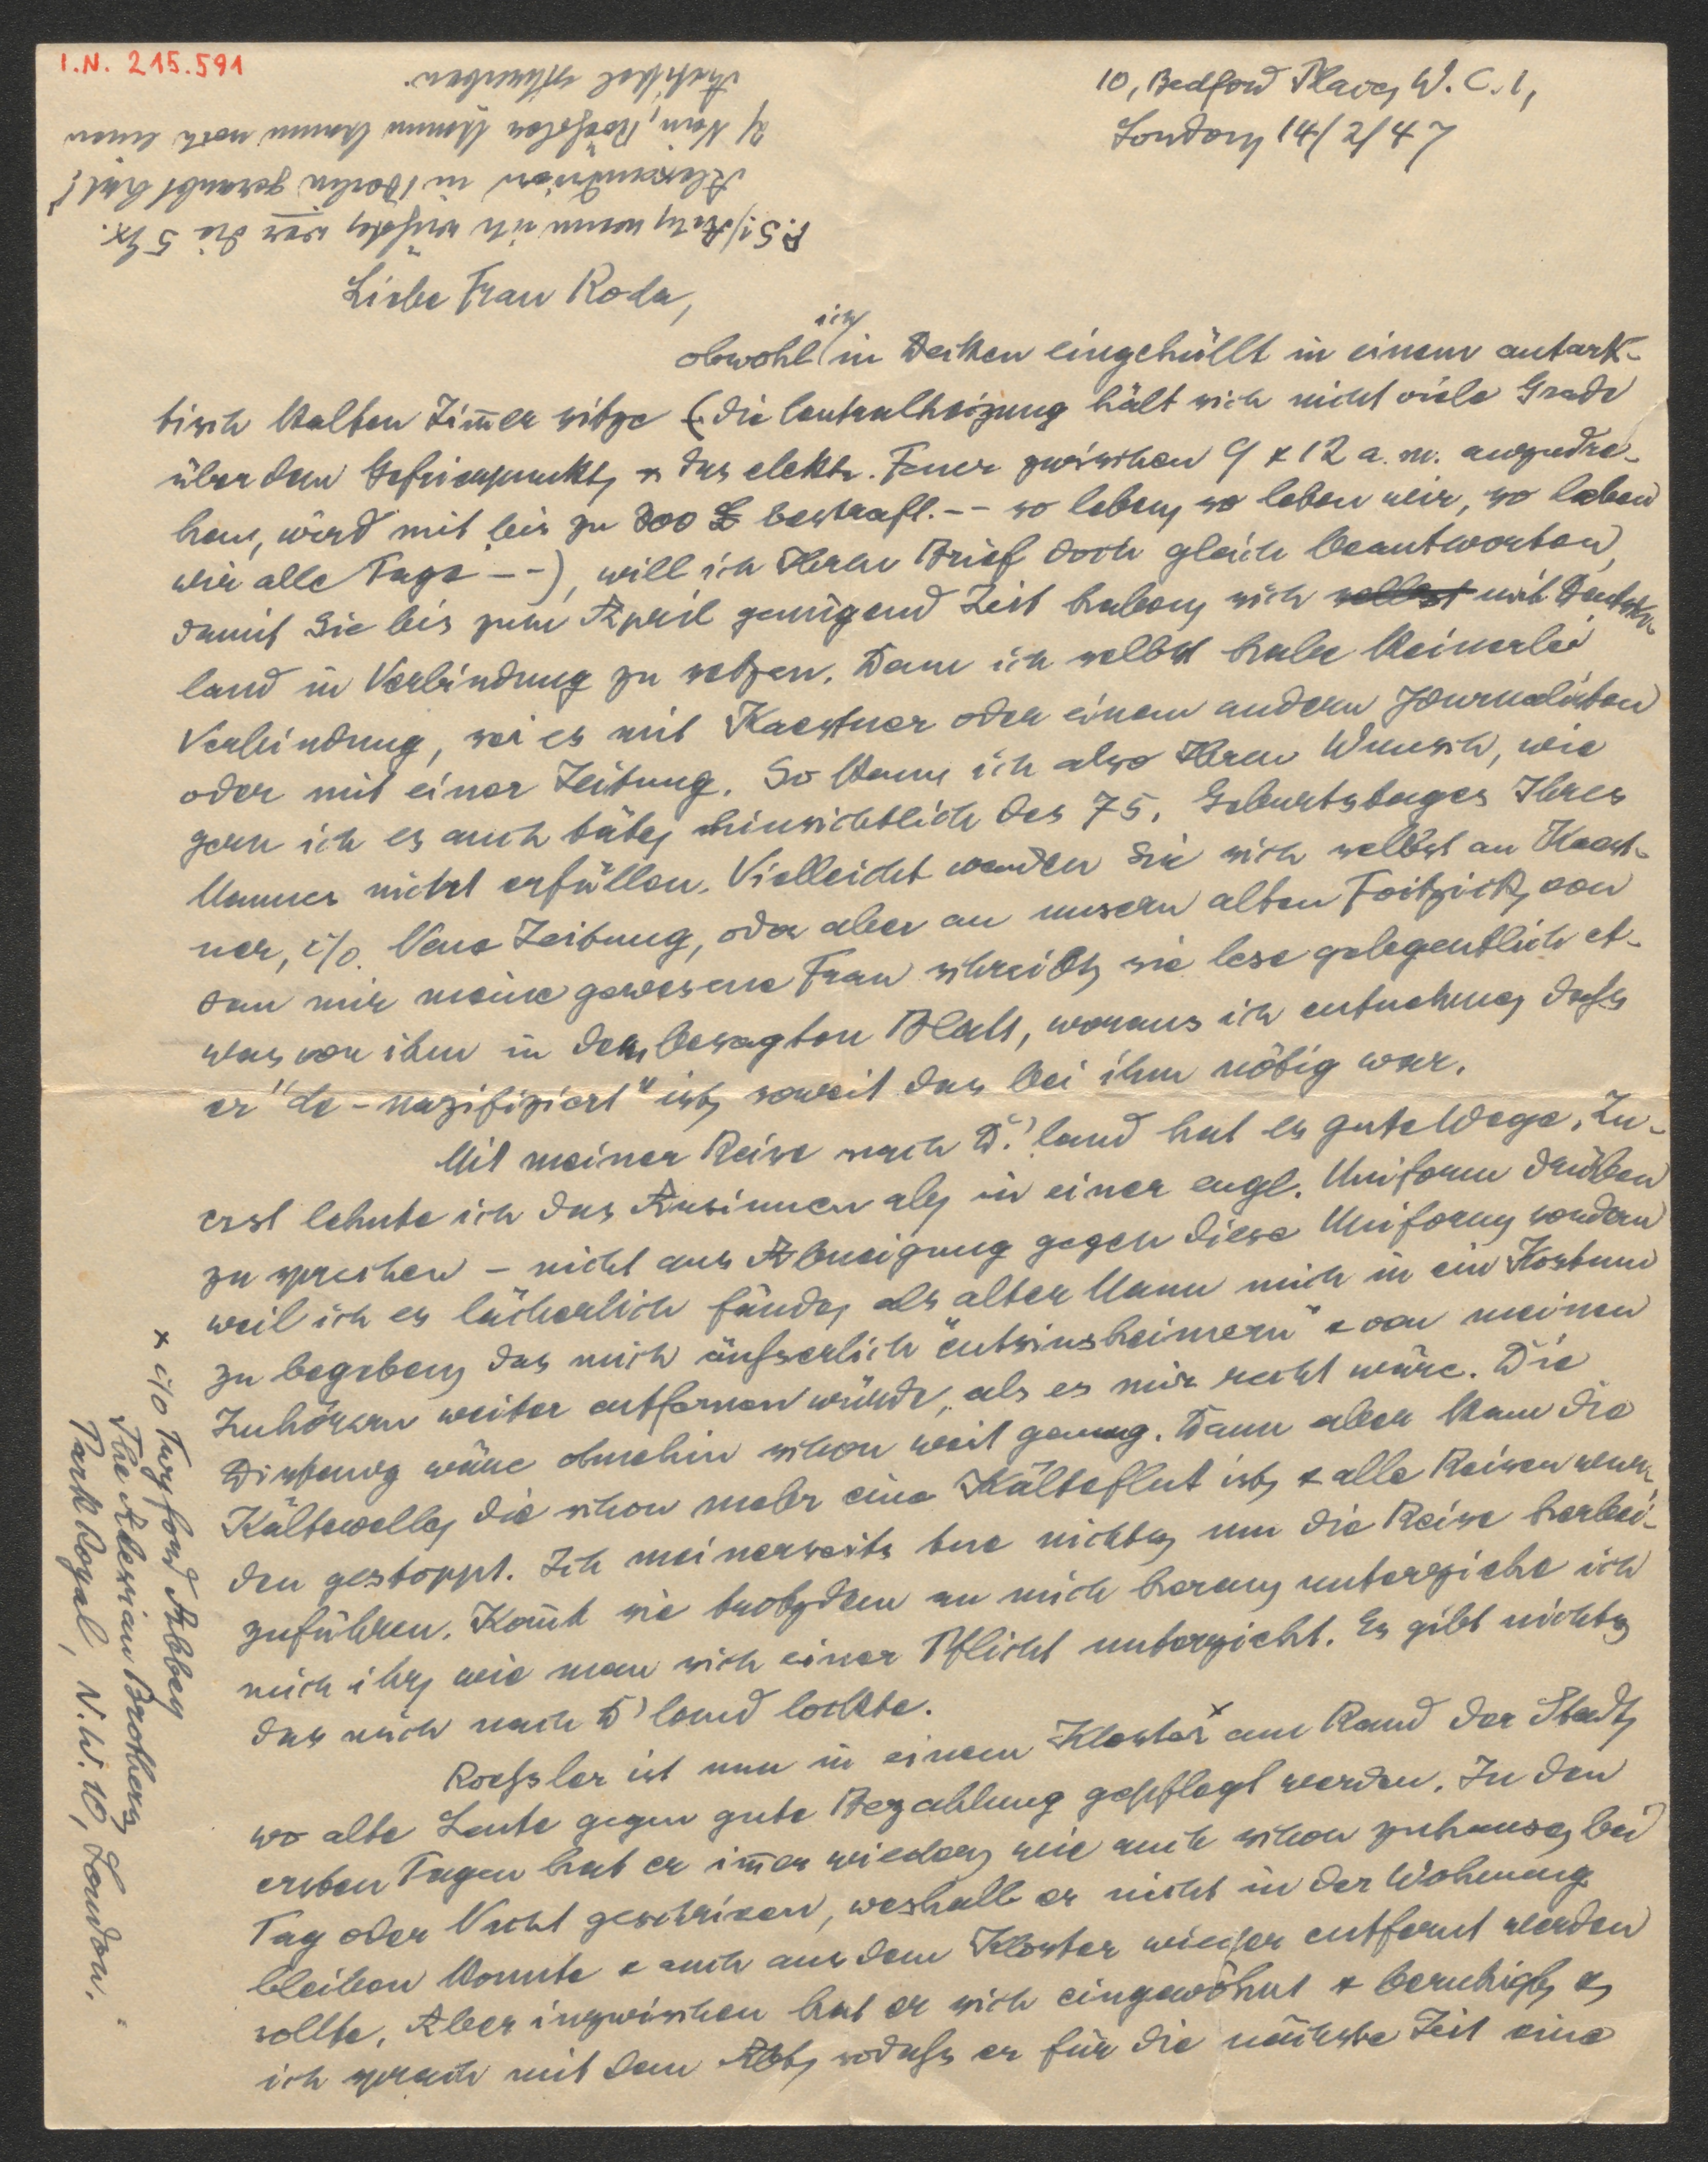 I.N. 215.591
10, Bedford Place, W.C.1,
London, 14/2/47
P.S. 1/ Ach, wenn ich wüsste, wer die 5 Ex.
Alexandrien in Berlin geraubt hat!
2/ Nein, Rössler kann kaum noch einen
Artikel schreiben.
Liebe Frau Roda,
obwohl ich in Decken eingehüllt in einem antark-
tisch kalten Zimer sitze (die Centralheizung hält sich nicht viele Grade
über dem Gefrierpunkt, & das elektr. Feuer zwischen 9 & 12 a.m. anzudre-
hen, wird mit bis zu 300 £ bestraft. -- so leben, so leben wir, so leben
wir alle Tage --), will ich Ihren Brief doch gleich beantworten,
damit Sie bis zum April genügend Zeit haben, sich selbst mit Deutsch-
land in Verbindung zu setzen. Denn ich selbst habe keinerlei
Verbindung, sei es mit Kaestner oder einem andern Journalisten
oder mit einer Zeitung. So kann ich also Ihren Wunsch, wie
gern ich es auch täte, hinsichtlich des 75. Geburtstages Ihres
Mannes nicht erfüllen. Vielleicht wenden Sie sich selbst an Kaest-
ner, c/o. Neue Zeitung, oder aber an unsern alten Foitzick, von
dem mir meine gewesene Frau schreibt, sie lese gelegentlich et-
was von ihm in dem besagten Blatt, woraus ich entnehme, dass
er "de-nazifiziert" ist, soweit das bei ihm nötig war.
Mit meiner Reise nach D.'land hat es gute Wege. Zu-
erst lehnte ich das Ansinnen ab, in einer engl. Uniform drüben
zu sprechen – nicht aus Abneigung gegen diese Uniform, sondern
weil ich es lächerlich fände, als alter Mann mich in ein Kostüm
zu begeben, das mich äusserlich "entsinsheimern" & von meinen
Zuhörern weiter entfernen würde, als es mir recht wäre. Die
Distanz wäre ohnehin schon weit genug. Dann aber kam die
Kältewelle, die schon mehr eine Kälteflut ist, & alle Reisen wur-
den gestoppt. Ich meinerseits tue nichts, um die Reise herbei-
zuführen. Komt sie trotzdem an mich heran, unterziehe ich
mich ihr, wie man sich einer Pflicht unterzieht. Es gibt nichts,
das mich nach D'land lockte.
Roessler ist nun in einem Kloster x am Rand der Stadt,
wo alte Leute gegen gute Bezahlung gepflegt werden. In den
ersten Tagen hat er imer wieder, wie auch schon zuhause, bei
Tag oder Nacht geschrieen, weshalb er nicht in der Wohnung
bleiben konnte & auch aus dem Kloster wieder entfernt werden
sollte. Aber inzwischen hat er sich eingewöhnt & beruhigt, &
ich sprach mit dem Abt, sodass er für die nächste Zeit eine
x c/o Twyford Abbey
The Alexian Brothers
Park Royal, N.W. 10, London.